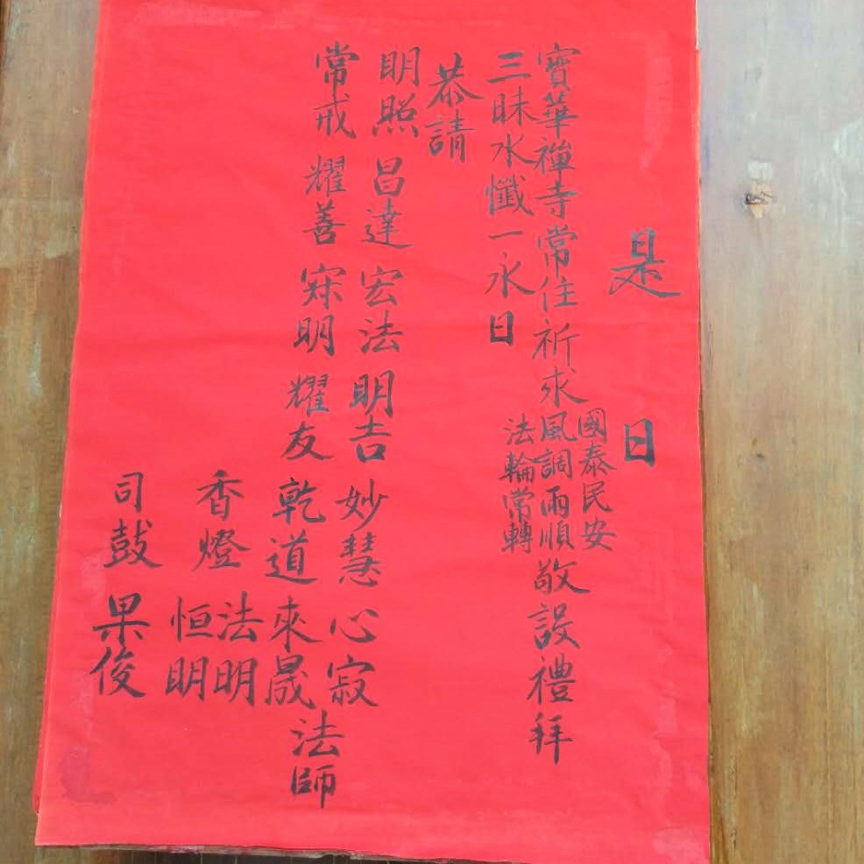 是日
寶華禪寺常住祈求
國泰民安
風調雨順
法輪常轉
敬設禮拜
三昧水懺一永日
恭請
明照 昌達 宏法 明吉 妙慧 心寂
常戒 耀善 寂明 耀友 乾道 來晟
法師
香燈 法明
恒明
司鼓 果俊